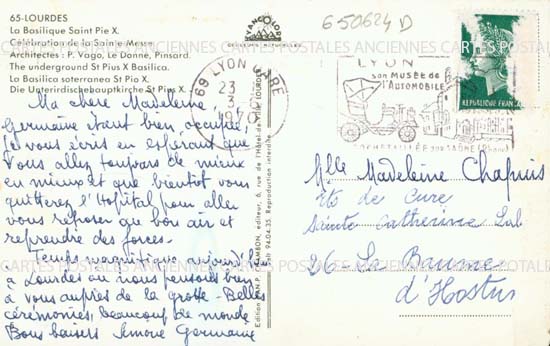 65-LOURDES
La Basilique Saint Pie X.
Célébration de la Sainte Messe.
Architectes : P. Vago, Le Donne, Pinsard.
The underground St Pius X Basilica.
La Basilica soterranea St Pio X.
Die Unterirdischehauptkirche St Pius X.
Ma chère Madeleine,
Germaine étant bien occupée,
je vous écris en espérant que
vous allez toujours de mieux
en mieux et que bientôt vous
quitterez l'Hôpital pour aller
vous reposer au bon air et
reprendre des forces.
Temps magnifique aujourd'hui
à Lourdes où nous pensons bien
à vous auprès de la grotte - Belles
cérémonies, beaucoup de monde
Bons baisers Simone Germaine
650624 D
69 LYON GARE
23
3
1970
LYON
son MUSÉE de
l'AUTOMOBILE
ROCHETAILLÉE sur SAÔNE (Rhône)
REPUBLIQUE FRANCAISE
Mlle Madeleine Chapuis
Ets de Cure
Sainte Catherine Labouré
26 - La Baume
d'Hostun
CARTES POSTALES ANCIENNES CARTES POSTALES ANCIENNES CARTES POSTALES